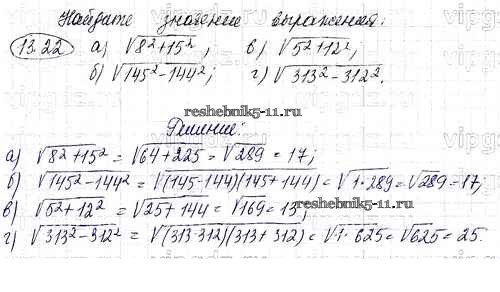 Найдите значение выражения:
13.22 а) √8²+15² ; в) √5²+12² ;
б) √145²-144² ; г) √313²-312² .
reshebnik5-11.ru
Решение:
а) √8²+15² = √64+225 = √289 = 17;
б) √145²-144² = √(145-144)(145+144) = √1·289 = √289 = 17;
в) √5²+12² = √25+144 = √169 = 13;
г) √313²-312² = √(313-312)(313+312) = √1·625 = √625 = 25.
reshebnik5-11.ru